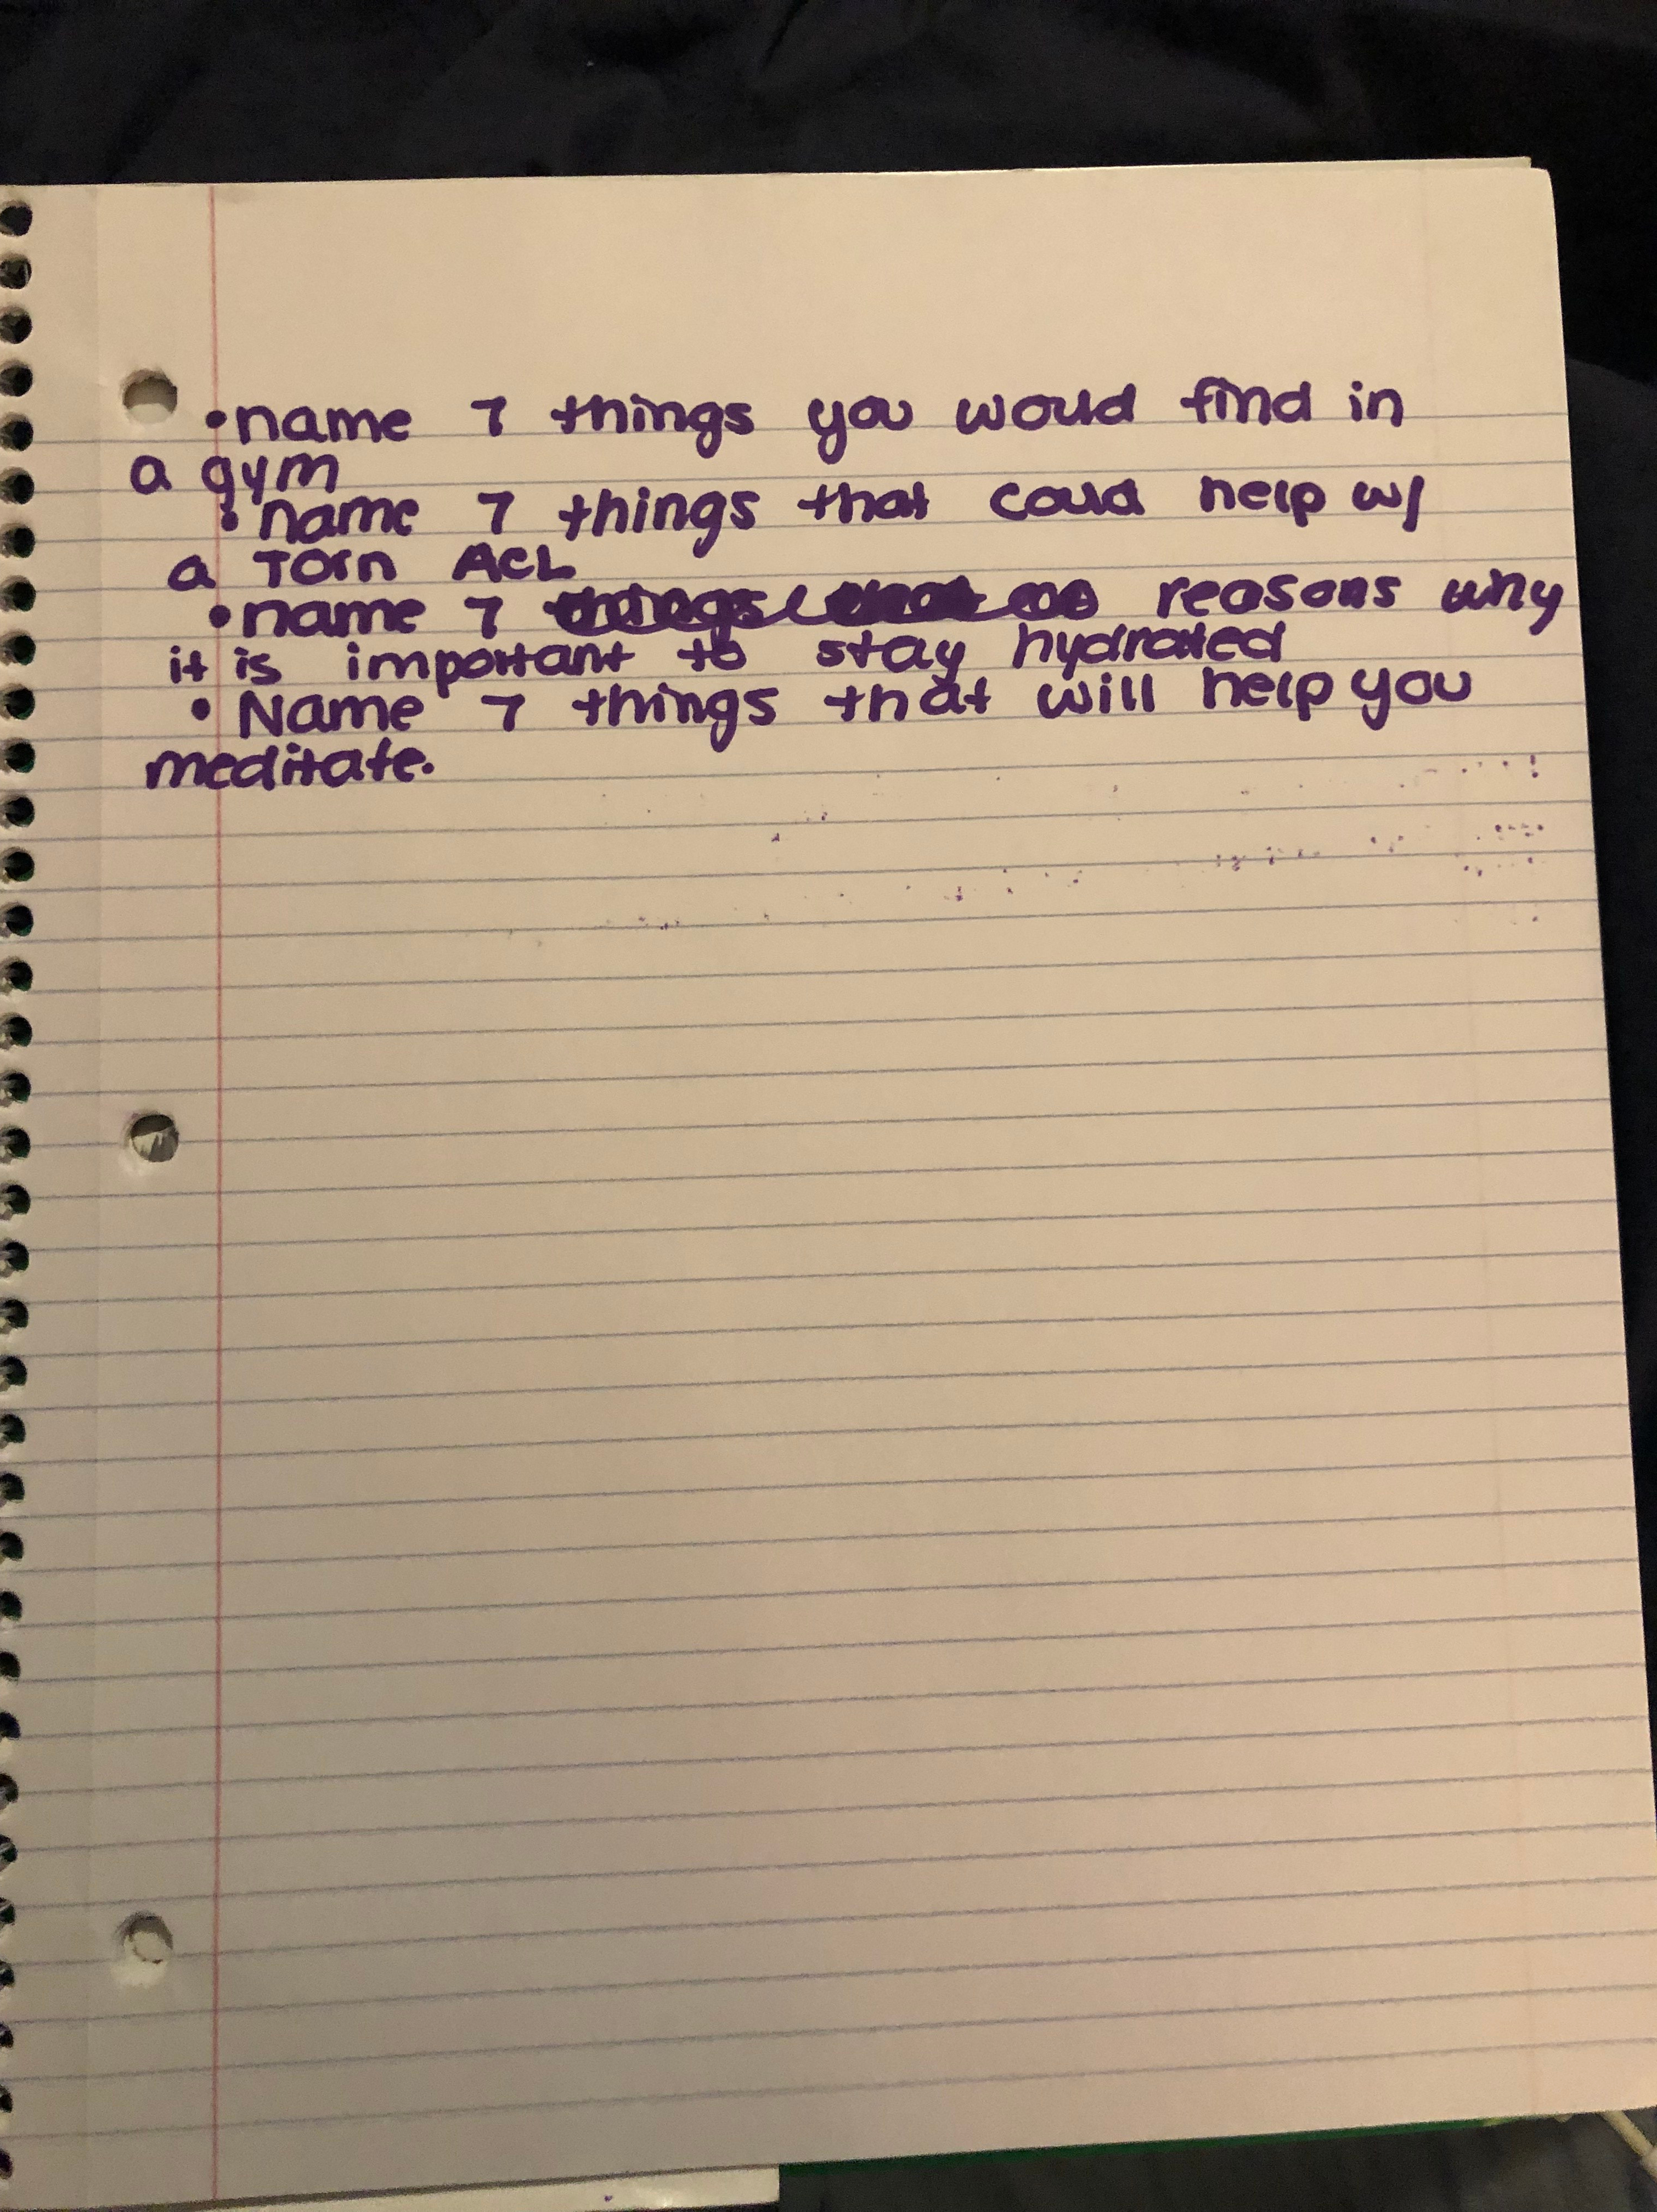 •name 7 things you would find in
a gym
• name 7 things that could help w/
a Torn ACL
•name 7 reasons why
it is important to stay hydrated
• Name 7 things that will help you
meditate.